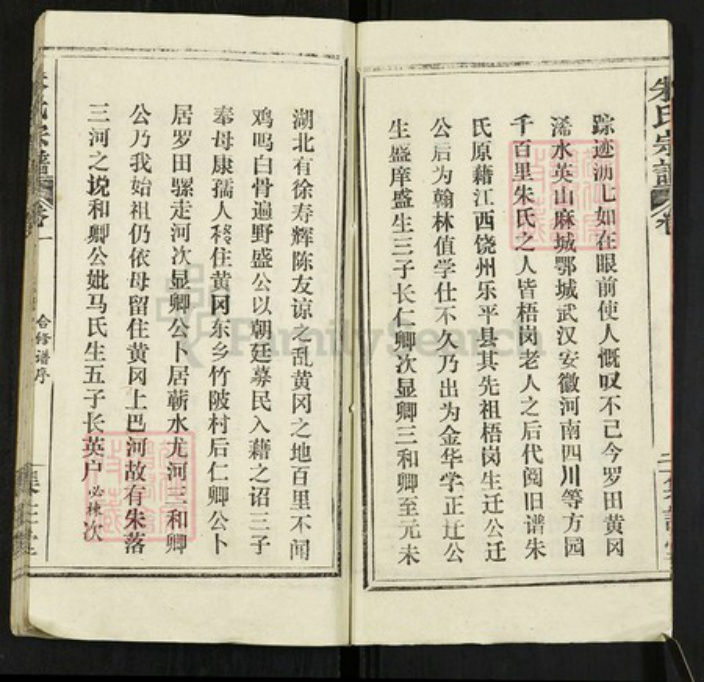 朱氏宗譜
踪迹沥匕如在眼前使人慨叹不己今罗田黄冈
浠水英山麻城鄂城武汉安徽河南四川等方园
千百里朱氏之人皆梧岗老人之后代阅旧谱朱
氏原藉江西饶州乐平县其先祖梧岗生迁公迁
公后为翰林值学仕不久乃出为金华学正迁公
生盛庠盛生三子长仁卿次显卿三和卿至元末
湖北有徐寿辉陈友谅之乱黄冈之地百里不闻
鸡鸣白骨遍野盛公以朝廷募民入藉之诏三子
奉母康孺人移住黄冈东乡竹陂村后仁卿公卜
居罗田骡走河次显卿公卜居蕲水尤河三和卿
公乃我始祖仍依母留住黄冈上巴河故有朱落
三河之说和卿公妣马氏生五子长英户必栋次
氏宗譜 卷一
合修谱序
FamilySearch